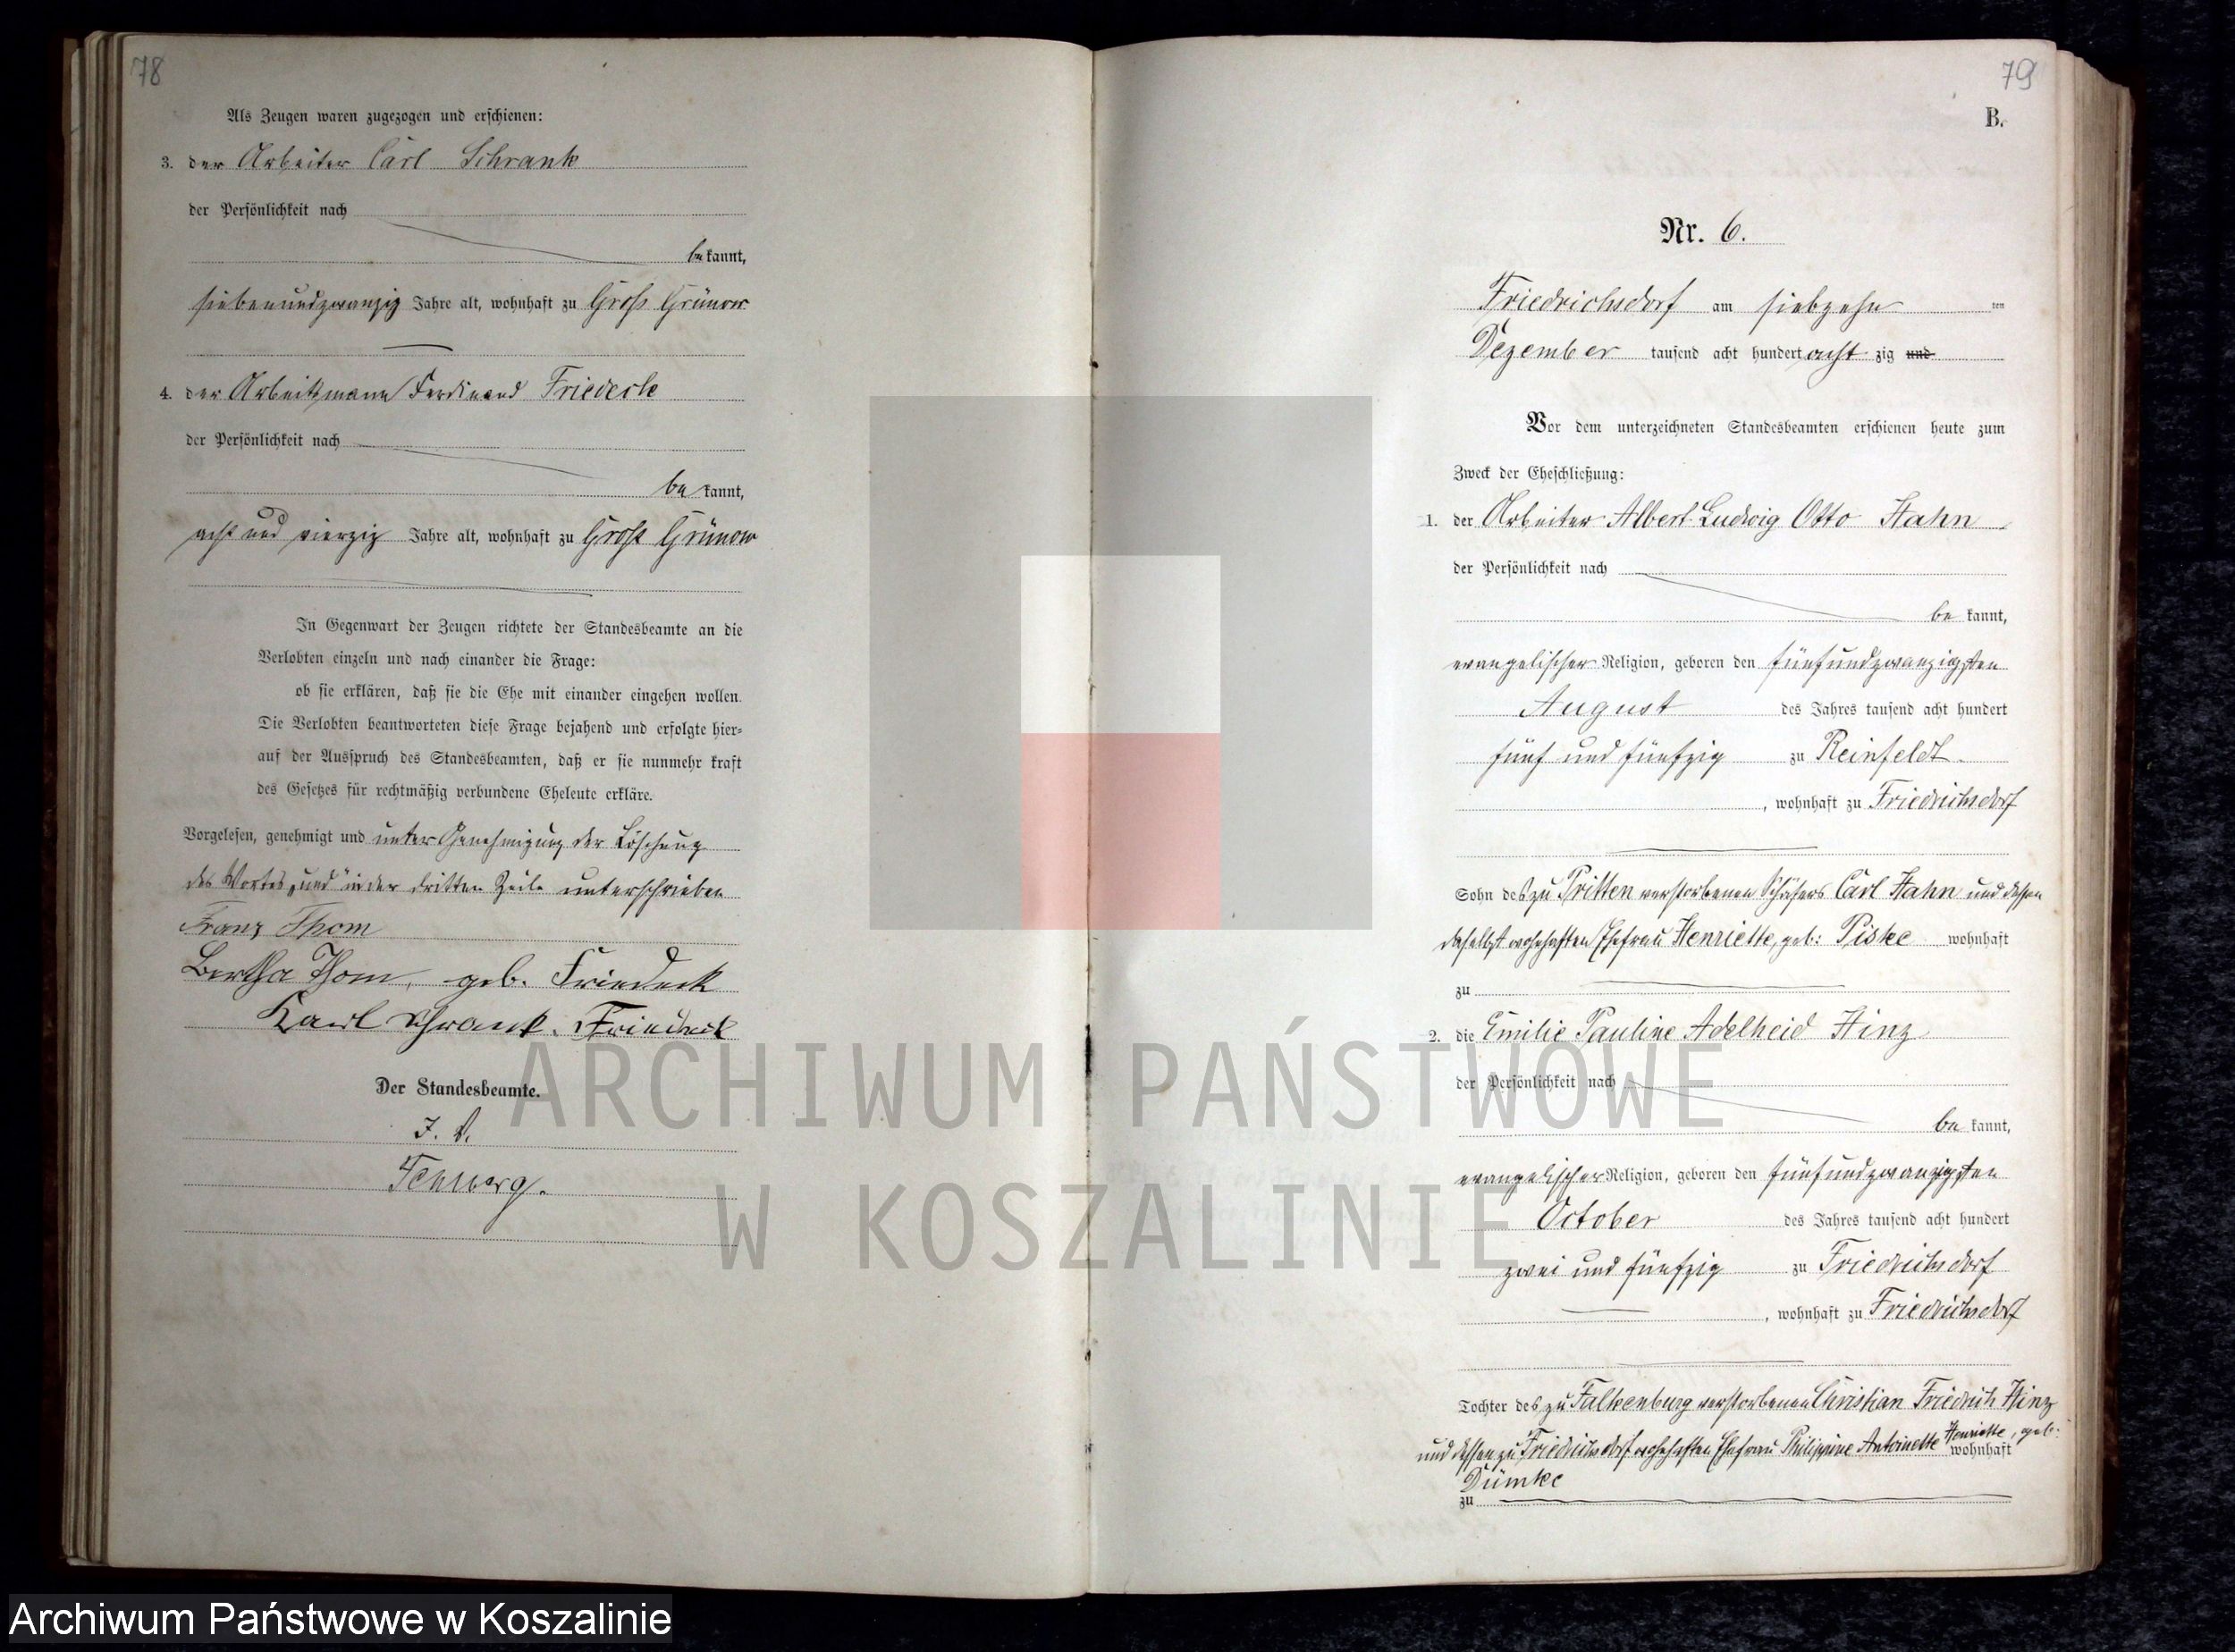 78
Als Zeugen waren zugezogen und erschienen:
3. der Arbeiter Carl Schrank
der Persönlichkeit nach
bekannt,
siebenundzwanzig Jahre alt, wohnhaft zu Groß Grünow
4. der Arbeitsmann Ferdinand Friedeck
der Persönlichkeit nach
bekannt,
acht und vierzig Jahre alt, wohnhaft zu Groß Grünow
In Gegenwart der Zeugen richtete der Standesbeamte an die
Verlobten einzeln und nach einander die Frage:
ob sie erklären, daß sie die Ehe mit einander eingehen wollen.
Die Verlobten beantworteten diese Frage bejahend und erfolgte hier-
auf der Ausspruch des Standesbeamten, daß er sie nunmehr kraft
des Gesetzes für rechtmäßig verbundene Eheleute erkläre.
Vorgelesen, genehmigt und unter Genehmigung der Löschung
des Wortes „und“ in der dritten Zeile unterschrieben
Franz Thom
Bertha Thom, geb. Friedeck
Karl Schrank. Friedeck
Der Standesbeamte.
I. V.
79
B.
Nr. 6.
Friedrichsdorf am siebzehn ten
Dezember tausend acht hundert acht zig und
Vor dem unterzeichneten Standesbeamten erschienen heute zum
Zweck der Eheschließung:
1. der Arbeiter Albert Ludwig Otto Hahn
der Persönlichkeit nach
be kannt,
evangelischer Religion, geboren den fünfundzwanzigsten
August des Jahres tausend acht hundert
fünf und fünfzig zu Reinfeldt.
, wohnhaft zu Friedrichsdorf
Sohn des zu Pritten verstorbenen Schäfers Carl Hahn und dessen
daselbst wohnhaften Ehefrau Henriette, geb: Piske wohnhaft
zu
2. die Emilie Pauline Adelheid Hinz
der Persönlichkeit nach
be kannt,
evangelischer Religion, geboren den fünfundzwanzigsten
October des Jahres tausend acht hundert
zwei und fünfzig zu Friedrichsdorf
, wohnhaft zu Friedrichsdorf
Tochter des zu Falkenburg verstorbenen Christian Friedrich Hinz
und dessen zu Friedrichsdorf wohnhaften Ehefrau Philippine Antoinette Henriette, geb: wohnhaft
Dümke
zu
ARCHIWUM PAŃSTWOWE
W KOSZALINIE
Archiwum Państwowe w Koszalinie